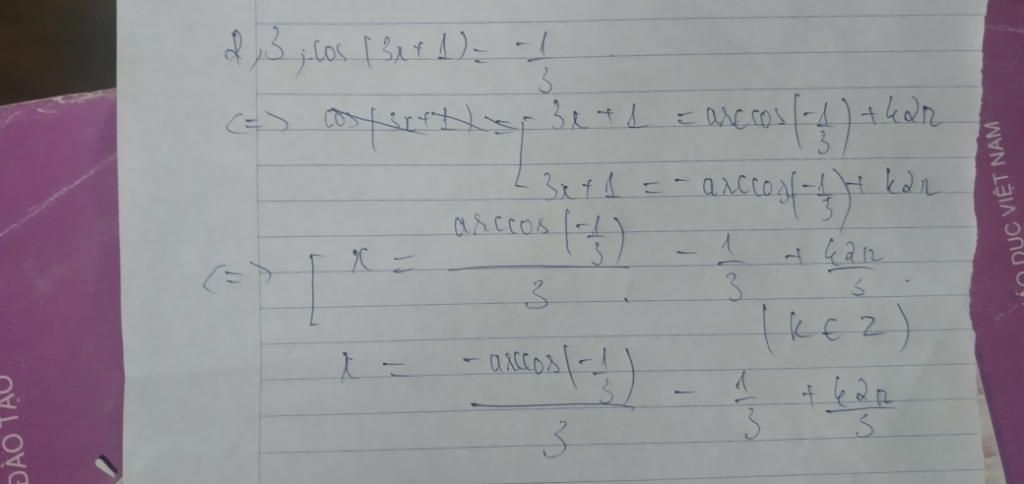 2, 3, cos (3x + 1) = -1/3
<=> cos (3x + 1) = [ 3x + 1 = arccos(-1/3) + k2π
3x + 1 = - arccos(-1/3) + k2π
<=> [ x = arccos(-1/3)/3 - 1/3 + k2π/3
(k ∈ Z)
x = -arccos(-1/3)/3 - 1/3 + k2π/3
ĐÀO TẠO
ÁO DỤC VIỆT NAM